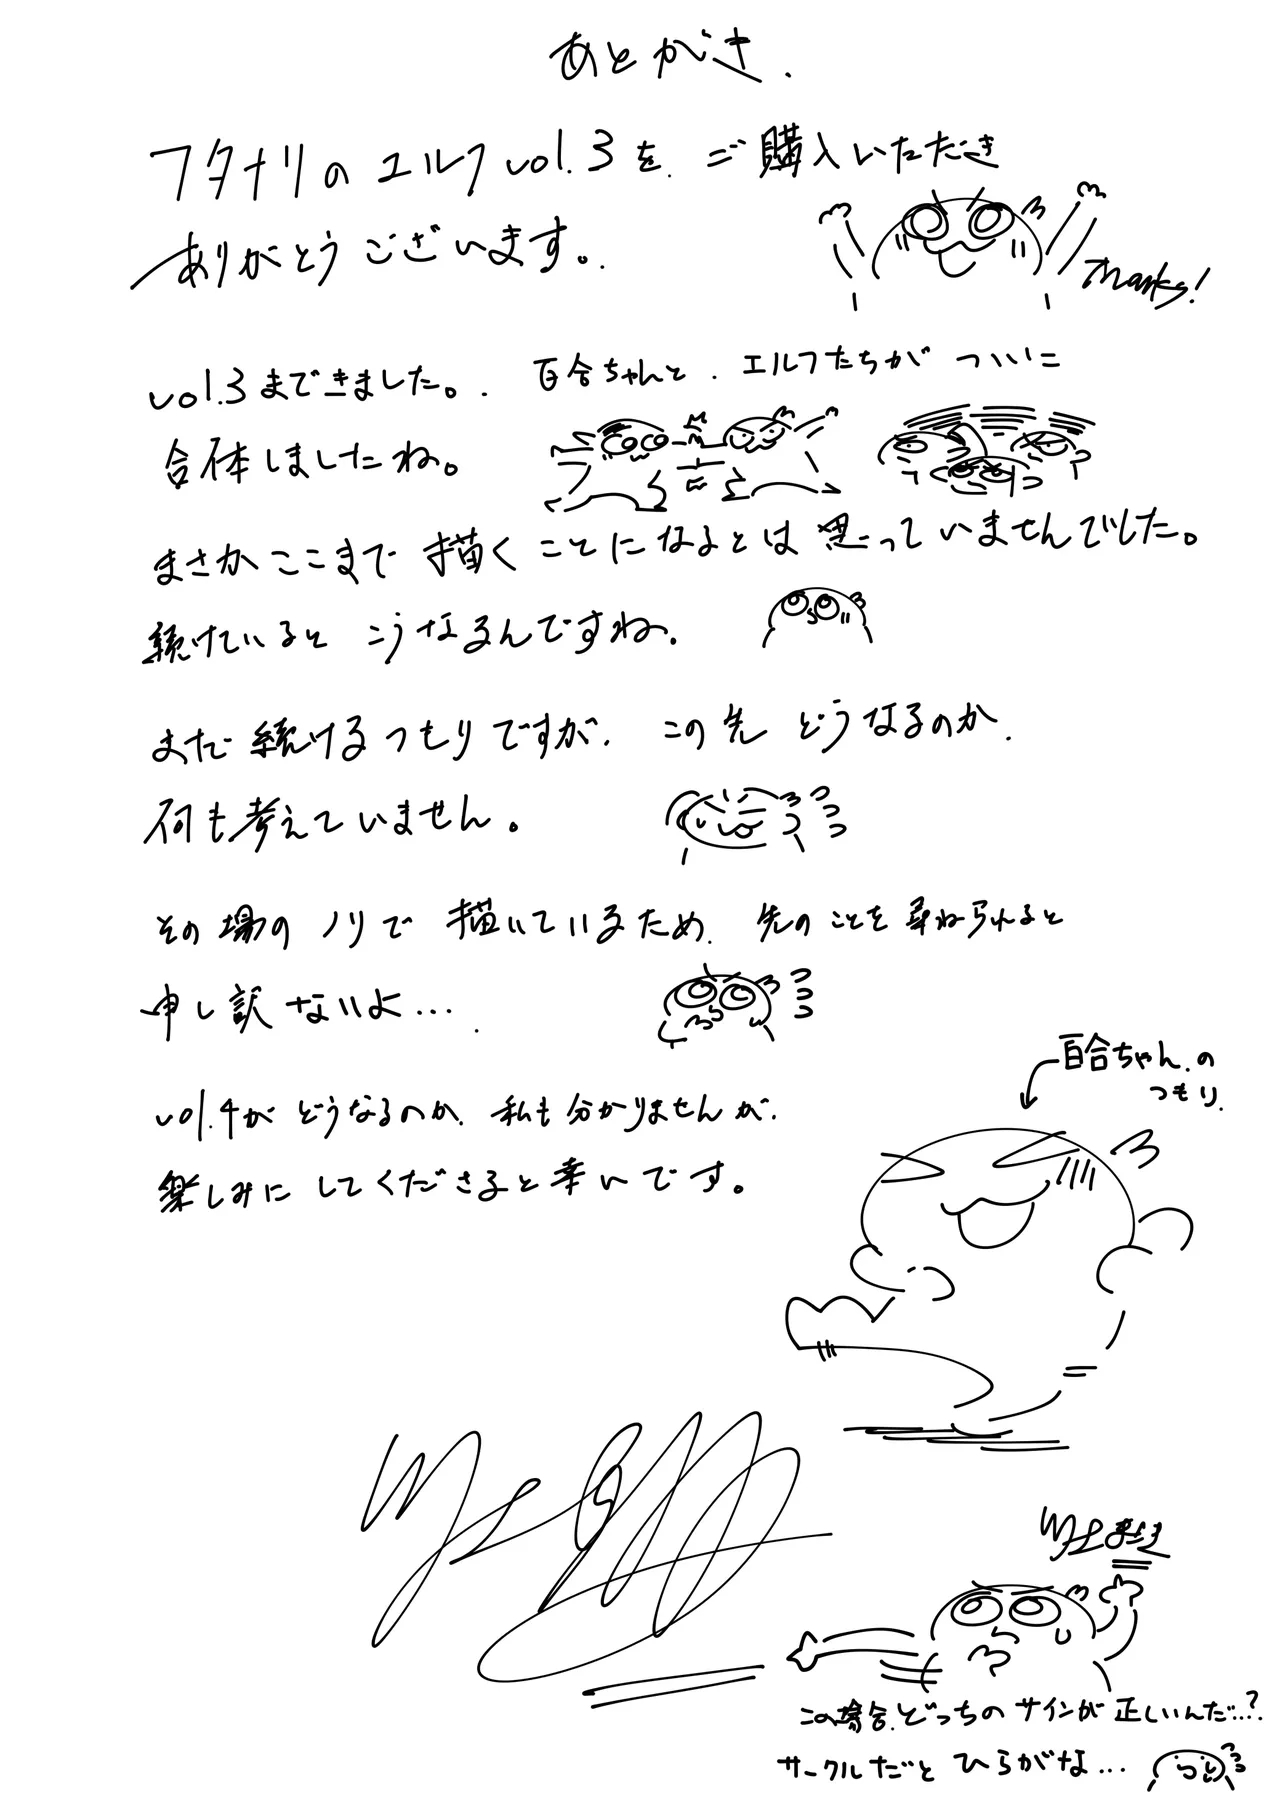 あとがき.
フタナリのエルフvol.3を、ご購入いただき
ありがとうございます。
Thanks!
vol.3まできました。百合ちゃんと、エルフたちがついに
合体しましたね。
まさかここまで描くことになるとは思っていませんでした。
続けているとこうなるんですね。
まだ続けるつもりですが、この先どうなるのか、
何も考えていません。
その場のノリで描いているため、先のことを尋ねられると
申し訳ないよ….
百合ちゃん.の
つもり.
vol.4がどうなるのか、私も分かりませんが、
楽しみにしてくださると幸いです。
この場合、どっちのサインが正しいんだ…?
サークルだとひらがな…